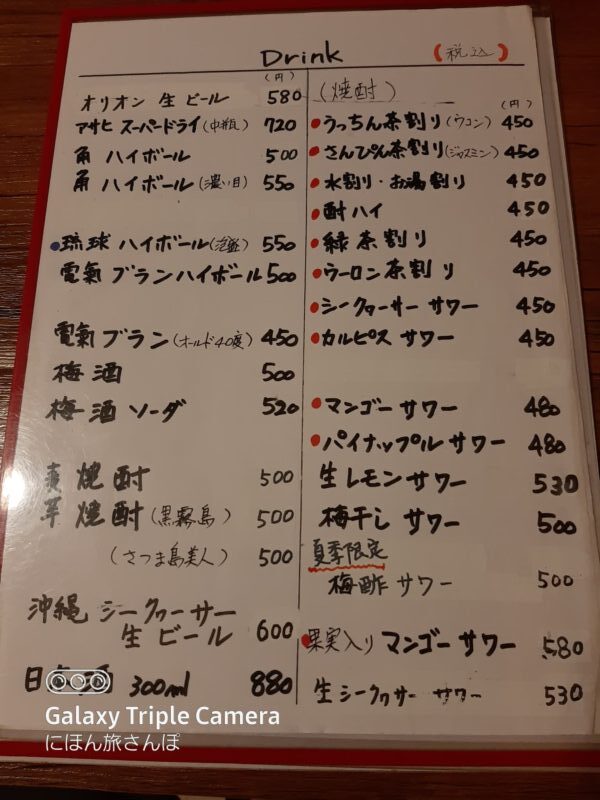 Drink
(税込)
(円)
オリオン 生 ビール 580
アサヒ スーパードライ (中瓶) 720
角 ハイボール 500
角 ハイボール (濃い目) 550
琉球 ハイボール (泡盛) 550
電氣 ブランハイボール 500
電氣 ブラン (オールド40度) 450
梅酒 500
梅酒 ソーダ 520
麦 焼酎 500
芋 焼酎 (黒霧島) 500
(さつま島美人) 500
沖縄 シークヮーサー
生 ビール 600
日本酒 300ml 880
(焼酎)
(円)
うっちん茶割り (ウコン) 450
さんぴん茶割り (ジャスミン) 450
水割り・お湯割り 450
酎ハイ 450
緑茶割り 450
ウーロン茶割り 450
シークヮーサー サワー 450
カルピス サワー 450
マンゴー サワー 480
パイナップル サワー 480
生 レモン サワー 530
梅干し サワー 500
夏季限定
梅酢 サワー 500
果実入り マンゴー サワー 580
生シークヮサー サワー 530
Galaxy Triple Camera
にほん旅さんぽ